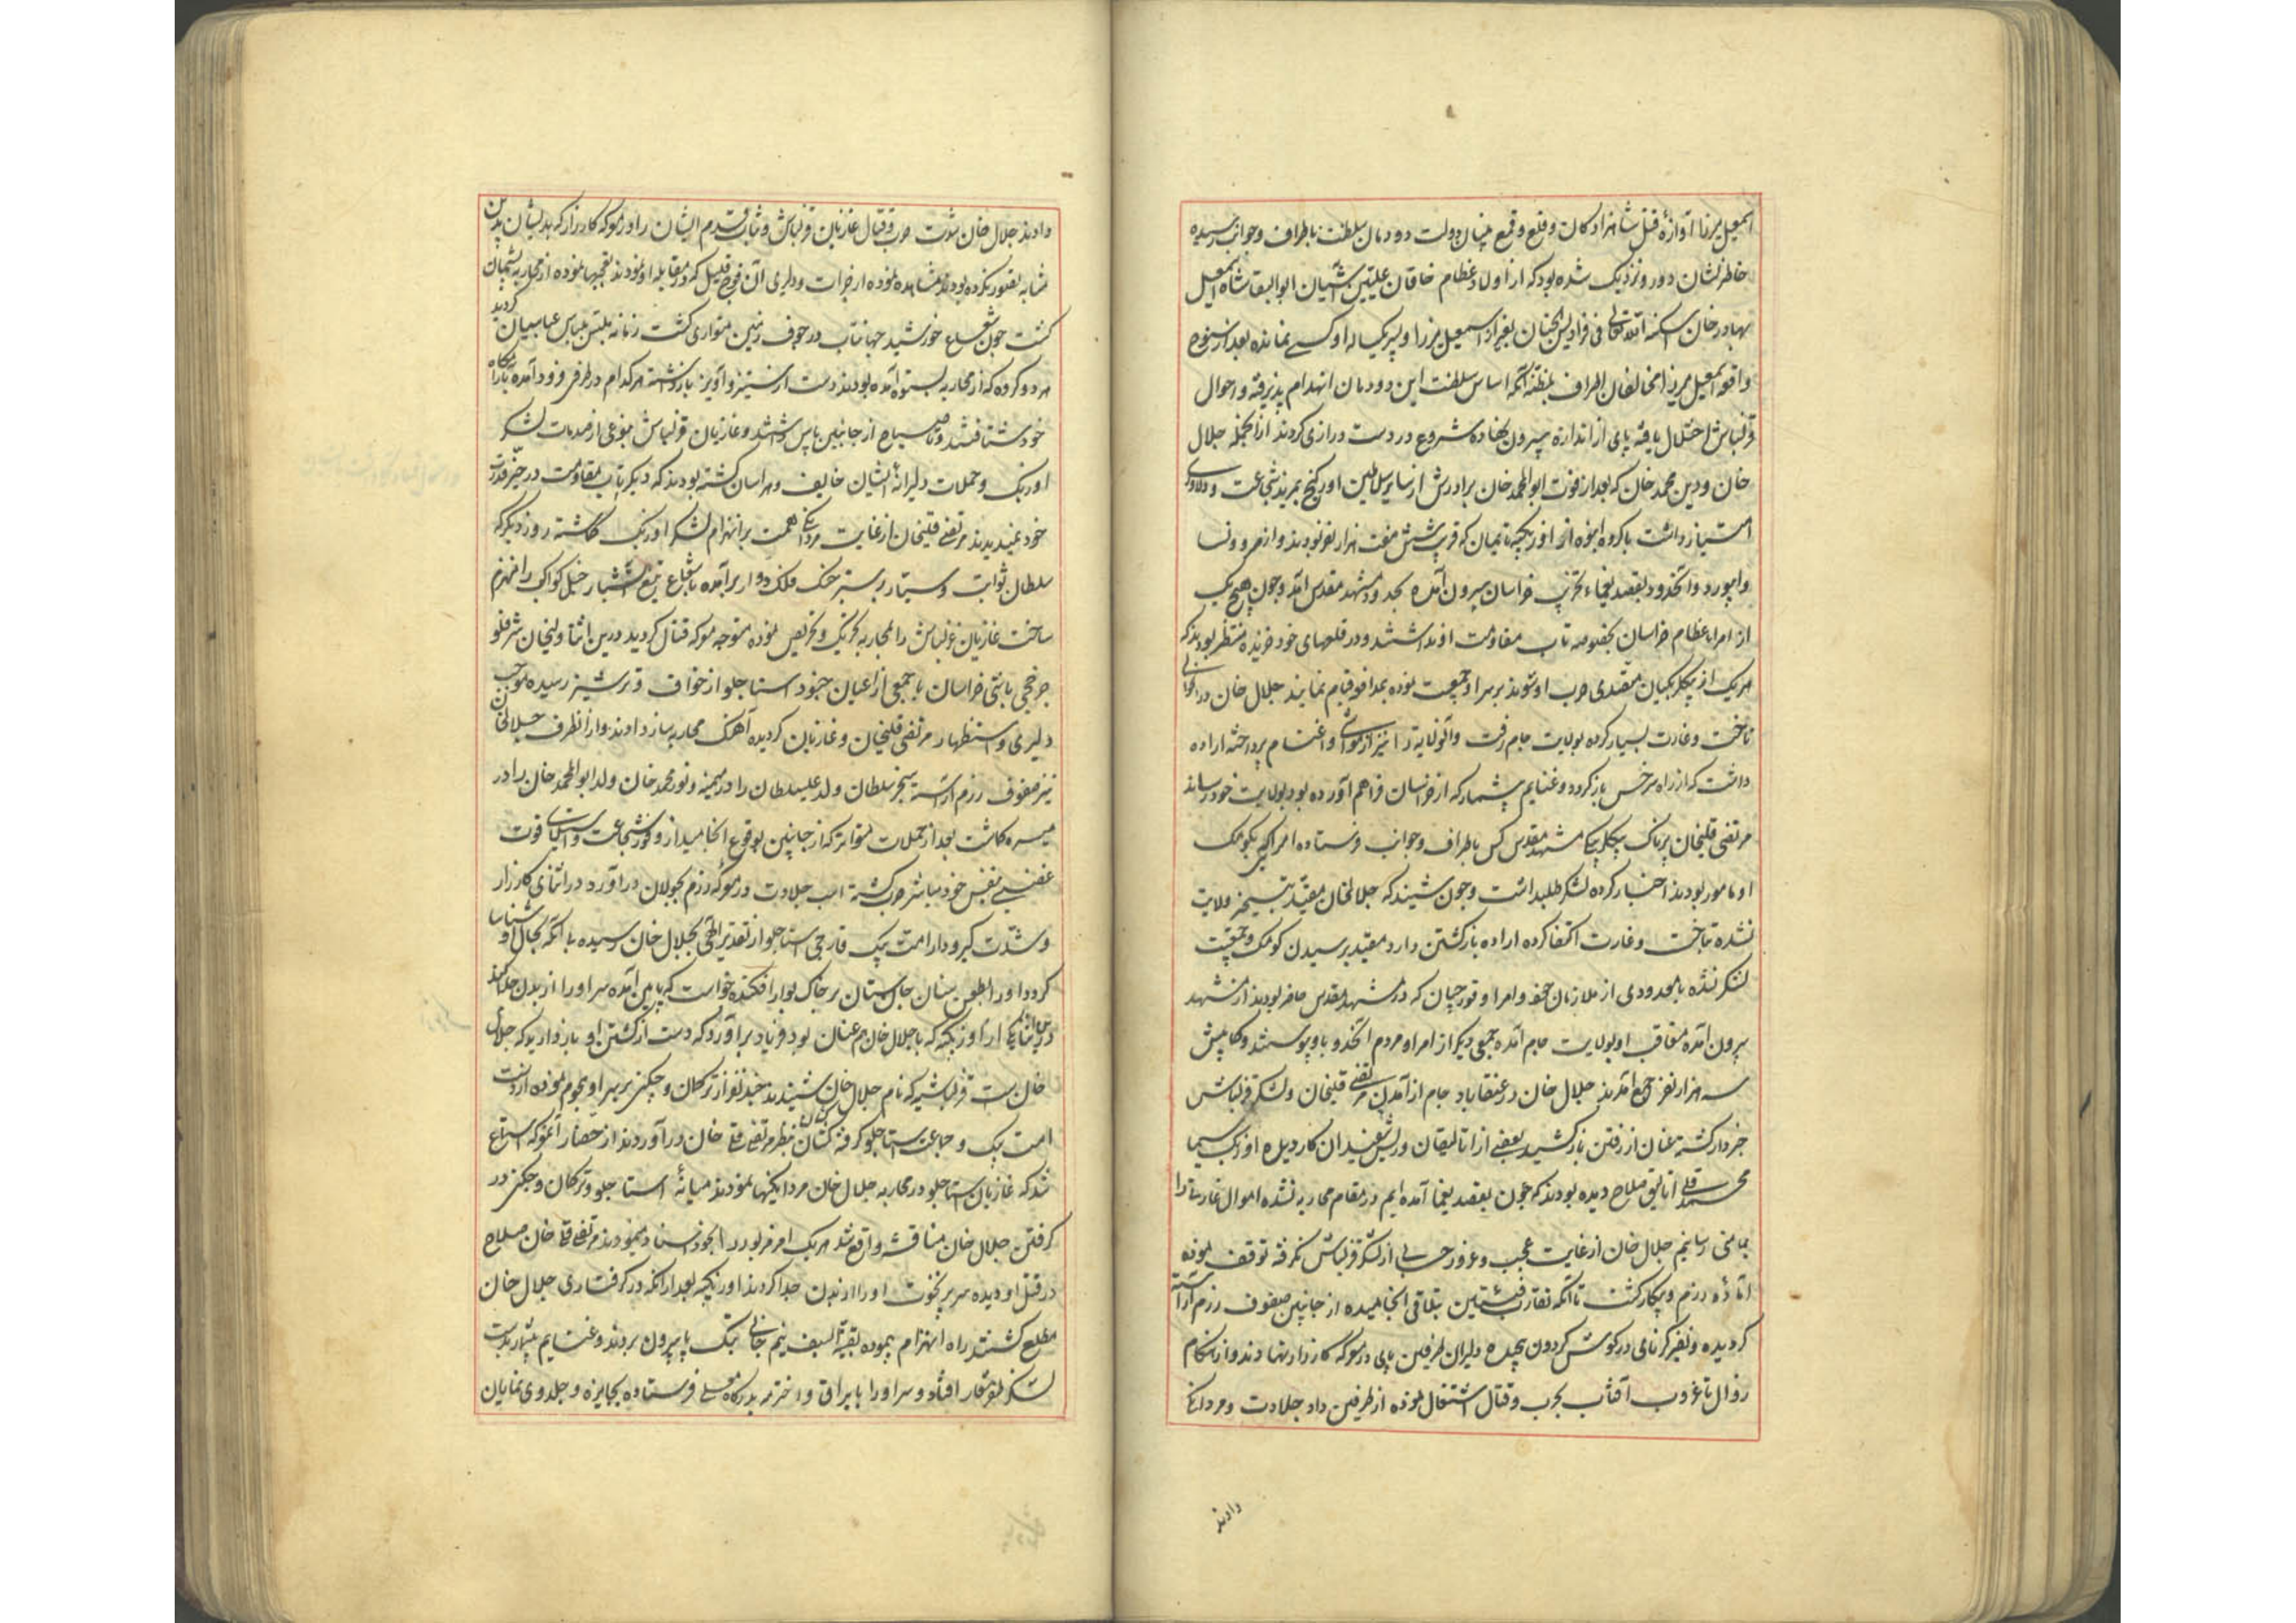 اسمعیل میرزا آوازهٔ قتل شاهزادکان و قلع و قمع بنیان دولت دودمان سلطنت باطراف و جوانب رسیده
خاطرنشان دور و نزدیک شده بود که از اولاد عظام خاقان علیین آشیان ابوالبقا شاه اسمعیل
بهادرخان اسکنه الله تعالی فی فرادیس الجنان بغیر از اسمعیل میرزا و پسر یکساله او کسی نمانده بعد از سنوح
واقعه اسمعیل میرزا مخالفان اطراف بمظنّه آنکه اساس سلطنت این دودمان انهدام پذیرفته و احوال
قزلباش اختلال یافته پای از اندازه بیرون نهاده شروع در دست درازی کردند از آنجمله جلال
خان ودین محمد خان که بعد از فوت ابوالمحمد خان برادرش از سایر سلاطین اورکنج بمزید شجاعت و دلاوری
امتیاز داشت با کروه انبوه از اوزبکیه تا یمان که قریب شش هفت هزار نفر بودند و از مرو و نسا
و ابیورد و آنحدود بقصد یغماء و تخریب خراسان بیرون آمده بحدود مشهد مقدس آمد و چون هیچ یک
از امراء عظام خراسان بخصوصه تاب مقاومت او نداشتند و در قلعهای خود خزیده منتظر بودند که
هر یک از بیکلربکیان متصدی حرب او شوند بر سر او جمعیت نموده بمدافعه قیام نمایند جلال خان در آن حوالی
تاخت و غارت بسیار کرده بولایت جام رفت و آنولایة را نیز از مواشی و اغنام پرداخته اراده
داشت که از راه سرخس باز کردد و غنایم بیشمار که از خراسان فراهم آورده بود بولایت خود رساند
مرتضی قلیخان پرناک بیکلربیکی مشهد مقدس کس باطراف و جوانب فرستاده امرا که بکومک
او مامور بودند اخبار کرده لشکر طلب داشت و چون شنید که جلالخان مقید بتسخیر ولایت
نشده بتاخت و غارت اکتفا کرده اراده باز کشتن دارد مقید برسیدن کومک و جمعیت
لشکر نشده با معدودی از ملازمان خود و امرا و قورچیان که در مشهد مقدس حاضر بودند از مشهد
بیرون آمده متعاقب او بولایت جام آمده جمعی دیکر از امرا و مردم آنحدود باو پیوستند و کمابیش
سه هزار نفر جمع آمدند جلال خان در عنقاباد جام از آمدن مرتضی قلیخان و لشکر قزلباش
خبردار کشته عنان از رفتن باز کشید بعضی از اتالیقان و ریش سفیدان کاردیده اوزبک سیما
محمد قلی اتالیق صلاح دیده بودند که چون بقصد یغما آمده ایم در مقام محاربه نشده اموال غارت را
بمامنی رسانیم جلال خان از غایت عجب و غرور حسابی از لشکر قزلباش نکرفته توقف نموده
آماده رزم و پیکار کشت تا آنکه تقارب فئتین بتلاقی انجامیده از جانبین صفوف رزم آراسته
کردیده و نفیر کرنای در کوش کردون پیچیده دلیران طرفین پای در معرکه کارزار نهادند و از هنکام
زوال تا غروب آفتاب بحرب و قتال اشتغال نموده از طرفین داد جلادت و مردانکی
دادند
دادند جلال خان شدت حرب و قتال غازیان قزلباش و ثبات قدم ایشان را در معرکه کارزار که بدیشان بدین
مثابه تصور نکرده بودند مشاهده نموده از جرات و دلیری آن فوج قلیل که در مقابله او نمودند تعجبها نموده از محاربه پشیمان کردید
کشت چون شعاع خورشید جهانتاب در جوف زمین متواری کشت زمانه ملبس بلباس عباسیان
هر دو کروه که از محاربه بستوه آمده بودند دست از ستیز و آویز باز داشته هر کدام در طرفی فرود آمده بآرامکاه
خود شتافتند و تا صباح از جانبین پاس داشتند و غازیان قزلباش بنوعی از صدمات لشکر
اوزبک و حملات دلیرانه ایشان خایف و هراسان کشته بودند که دیکر تاب مقاومت در حیّز قدرت
خود نمیدیدند مرتضی قلیخان از غایت مردانکی همت بر انهزام لشکر اوزبک کماشته روز دیکر که
سلطان ثوابت و سیار بر سبز خنک فلک دوار برآمده بشعاع تیغ آتشبار خیل کواکب را منهزم
ساخت غازیان قزلباش را بمحاربه تحریک و تحریص نموده متوجه معرکه قتال کردید درین اثنا ولیخان شرفلو
حاکم باشی خراسان با جمعی از اعیان جنود استاجلو از خواف و ترشیز رسیده موجب
دلیری و استظهار مرتضی قلیخان و غازیان کردیده آهنک محاربه ساز دادند و از آنطرف جلالخان
نیز صفوف رزم آراسته سنجر سلطان ولد علی سلطان را در میمنه و نور محمد خان ولد ابوالمحمد خان برادر
میسره کماشت بعد از حملات متواتر که از جانبین بوقوع انجامید از وفور شجاعت و استیلای قوت
غضبی بنفس خود مباشر حرب کشته اسب جلادت در معرکه رزم بجولان درآورد در اثنای کارزار
و شدت کیرودار امت بیک قارنجی استاجلو از تقدیر الهی بجلال خان رسیده بی آنکه بحال او شناسا
کردد او را بطعن سنان جان ستان بر خاک بوار افکنده خواست که پایین آمده سر او را از بدن جدا کند
درین اثنا یکی از اوزبکیه که با جلال خان هم عنان بود فریاد برآورد که دست از کشتن او باز دارید که جلال
خان است قزلباشیه که نام جلال خان شنیدند چند نفر از ترکمان و چکنی بر سر او هجوم نموده از دست
امت بیک و جماعت استاجلو کرفته کشان کشان بنظر مرتضی قلی خان درآوردند از حضار آنمعرکه استماع
شد که غازیان استاجلو در محاربه جلال خان مردانکیها نمودند میانهٔ استاجلو و ترکمان و چکنی در
کرفتن جلال خان مناقشه واقع شد هر یک امر مزبور را بخود اسناد مینمودند مرتضی قلی خان صلاح
در قتل او دیده سر پر نخوت او را از بدن جدا کردند اوزبکیه بعد از آنکه در کرفتاری جلال خان
مطلع کشتند راه انهزام پیموده بقیة السیف نیم جانی بتک پا بیرون بردند و غنایم بسیار بدست
لشکر ظفر شعار افتاد و سر او را با یراق و اخترمه بدرکاه معلی فرستاده بجایزه و جلدوی نمایان